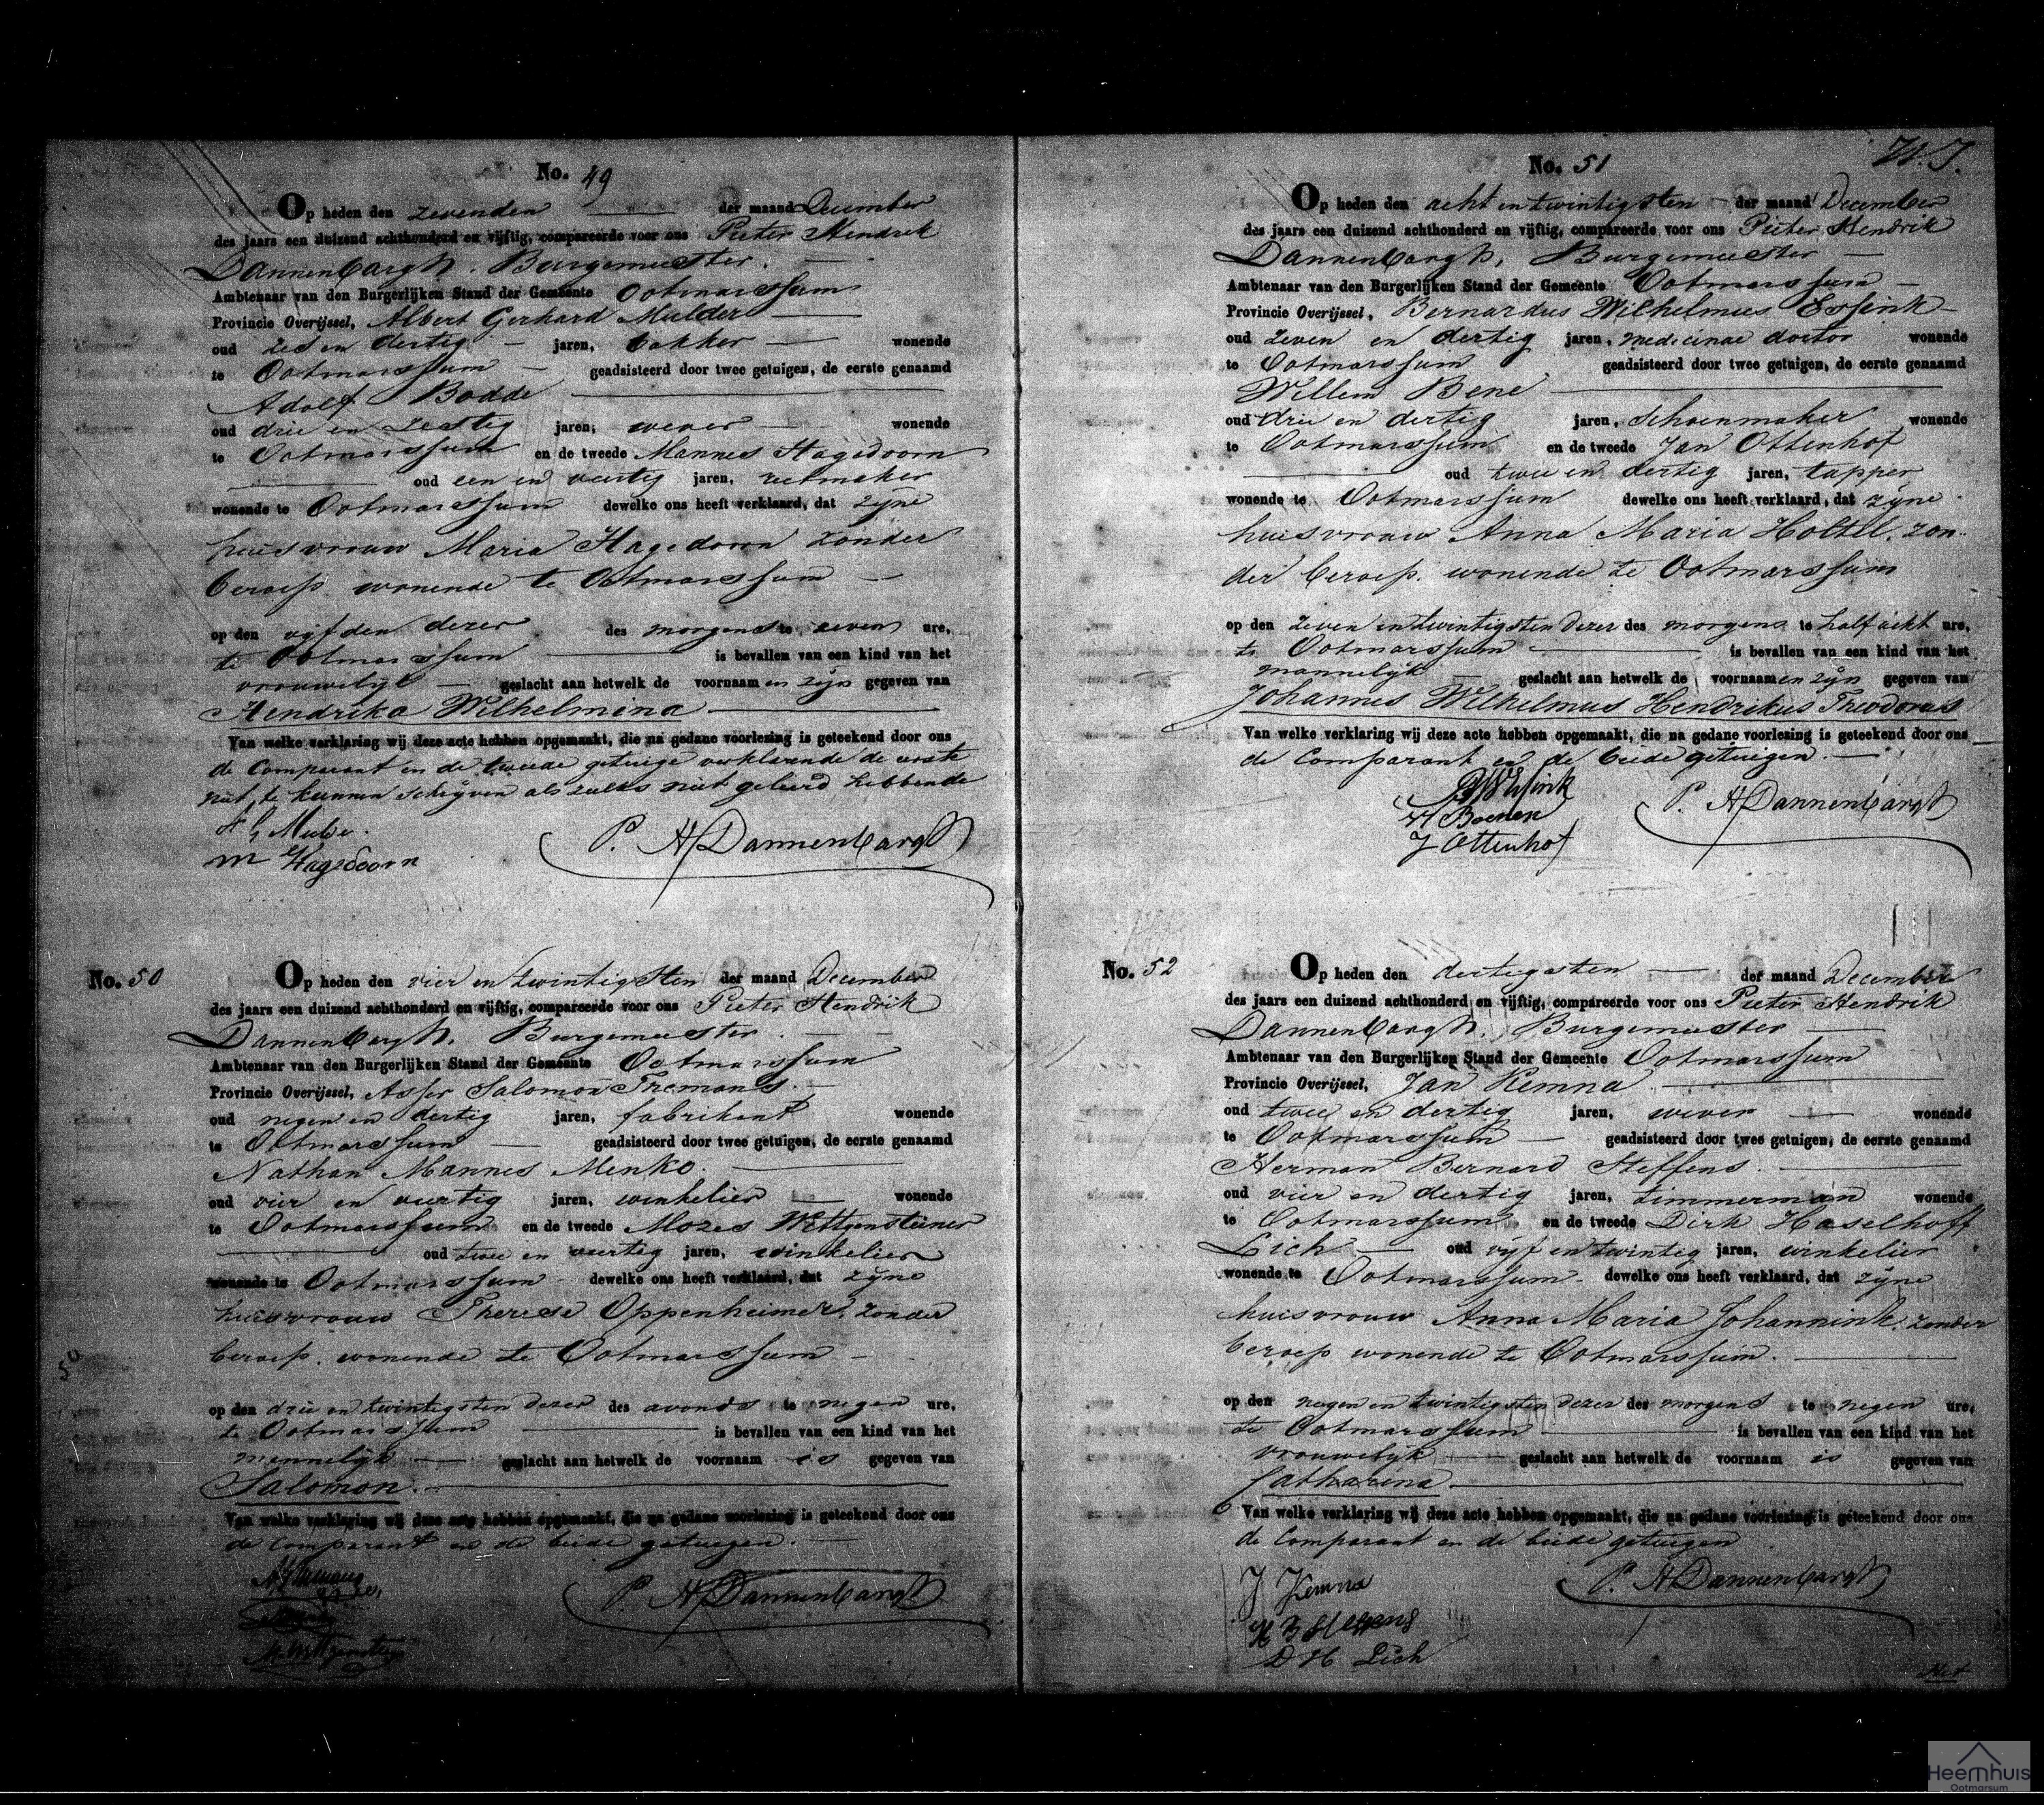 No. 49
Op heden den zevenden der maand December
des jaars een duizend achthonderd en vijftig, compareerde voor ons Pieter Hendrik
Dannenbargh, Burgemeester.
Ambtenaar van den Burgerlijken Stand der Gemeente Ootmarssum
Provincie Overijssel, Albert Gerhard Mulder
oud zes en dertig jaren, bakker wonende
te Ootmarssum geadsisteerd door twee getuigen, de eerste genaamd
Adolf Bodde
oud drie en zestig jaren, wever wonende
te Ootmarssum en de tweede Mannes Hagedoorn
oud een en veertig jaren, zeelmaker
wonende te Ootmarssum dewelke ons heeft verklaard, dat zyne
huisvrouw Maria Hagedoorn zonder
beroep wonende te Ootmarssum
op den vyfden dezer des morgens te zeven ure,
te Ootmarssum is bevallen van een kind van het
vrouwelyk geslacht aan hetwelk de voornaamen zyn gegeven van
Hendrika Wilhelmina
Van welke verklaring wij deze acte hebben opgemaakt, die na gedane voorlezing is geteekend door ons
de Comparant en de tweede getuige verklarende de eerste
niet te kunnen schryven als zulks niet geleerd hebbende
A G Mulder
M Hagedoorn
P. H Dannenbargh
No. 50
Op heden den vier en twintigsten der maand December
des jaars een duizend achthonderd en vijftig, compareerde voor ons Pieter Hendrik
Dannenbargh, Burgemeester.
Ambtenaar van den Burgerlijken Stand der Gemeente Ootmarssum
Provincie Overijssel, Asser Salomon Fremans.
oud negen en dertig jaren, fabrikant wonende
te Ootmarssum geadsisteerd door twee getuigen, de eerste genaamd
Nathan Mannes Menko.
oud vier en veertig jaren, winkelier wonende
te Ootmarssum en de tweede Mozes Wittgensteiner
oud twee en veertig jaren, winkelier
wonende te Ootmarssum dewelke ons heeft verklaard, dat zyne
huisvrouw Therese Oppenheimer, zonder
beroep. wonende te Ootmarssum
50
op den drie en twintigsten dezer des avonds te negen ure,
te Ootmarssum is bevallen van een kind van het
mannelyk geslacht aan hetwelk de voornaam is gegeven van
Salomon.
Van welke verklaring wij deze acte hebben opgemaakt, die na gedane voorlezing is geteekend door ons
de Comparant en de beide getuigen.
P. H Dannenbargh
W. J.
No. 51
Op heden den acht en twintigsten der maand December
des jaars een duizend achthonderd en vijftig, compareerde voor ons Pieter Hendrik
Dannenbargh, Burgemeester
Ambtenaar van den Burgerlijken Stand der Gemeente Ootmarssum
Provincie Overijssel, Bernardus Wilhelmus Essink
oud zeven en dertig jaren, medicinae doctor wonende
te Ootmarssum geadsisteerd door twee getuigen, de eerste genaamd
Willem Bene
oud drie en dertig jaren, schoenmaker wonende
te Ootmarssum en de tweede Jan Ottenhof
oud twee en dertig jaren, tapper
wonende te Ootmarssum dewelke ons heeft verklaard, dat zyne
huisvrouw Anna Maria Holtel, zon-
der beroep. wonende te Ootmarssum
op den zeven en twintigsten dezer des morgens te half acht ure,
te Ootmarssum is bevallen van een kind van het
mannelyk geslacht aan hetwelk de voornaamen zyn gegeven van
Johannes Wilhelmus Hendrikus Theodorus
Van welke verklaring wij deze acte hebben opgemaakt, die na gedane voorlezing is geteekend door ons
de Comparant en de beide getuigen.
BW Essink
W Boenen
J Ottenhof
P. H Dannenbargh
No. 52
Op heden den dertigsten der maand December
des jaars een duizend achthonderd en vijftig, compareerde voor ons Pieter Hendrik
Dannenbargh, Burgemeester
Ambtenaar van den Burgerlijken Stand der Gemeente Ootmarssum
Provincie Overijssel, Jan Kemna
oud twee en dertig jaren, wever wonende
te Ootmarssum geadsisteerd door twee getuigen, de eerste genaamd
Herman Bernard Steffens.
oud vier en dertig jaren, timmerman wonende
te Ootmarssum en de tweede Dirk Haselhoff
Lich oud vyf en twintig jaren, winkelier
wonende te Ootmarssum dewelke ons heeft verklaard, dat zyne
huisvrouw Anna Maria Johannink, zonder
beroep wonende te Ootmarssum.
op den negen en twintigsten dezer des morgens te negen ure,
te Ootmarssum is bevallen van een kind van het
vrouwelyk geslacht aan hetwelk de voornaam is gegeven van
Catharina
Van welke verklaring wij deze acte hebben opgemaakt, die na gedane voorlezing is geteekend door ons
de Comparant en de beide getuigen
J Kemna
H B Steffens
D H Lich
P. H Dannenbargh
Heemhuis
Ootmarsum